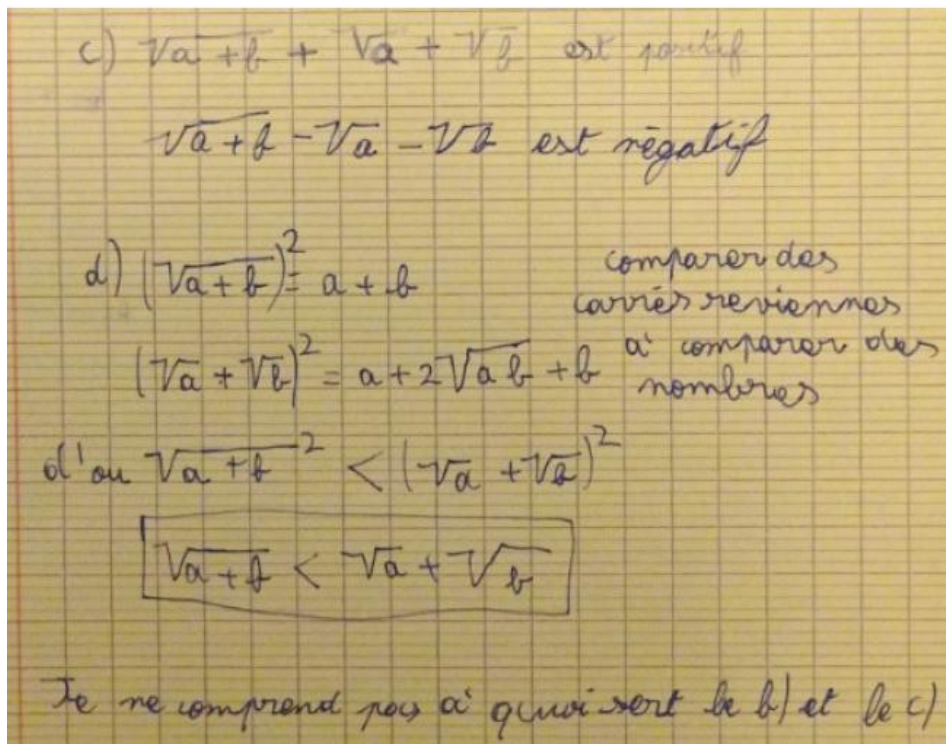 c) √a+b + √a + √b est positif
√a+b - √a - √b est négatif
d) (√a+b)² = a + b
(√a + √b)² = a + 2√ab + b
comparer des
carrés reviennes
à comparer des
nombres
d'ou √a+b² < (√a + √b)²
√a+b < √a + √b
Je ne comprend pas à quoi sert le b) et le c)